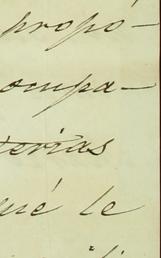 propó-
ompa-
terias
ué le